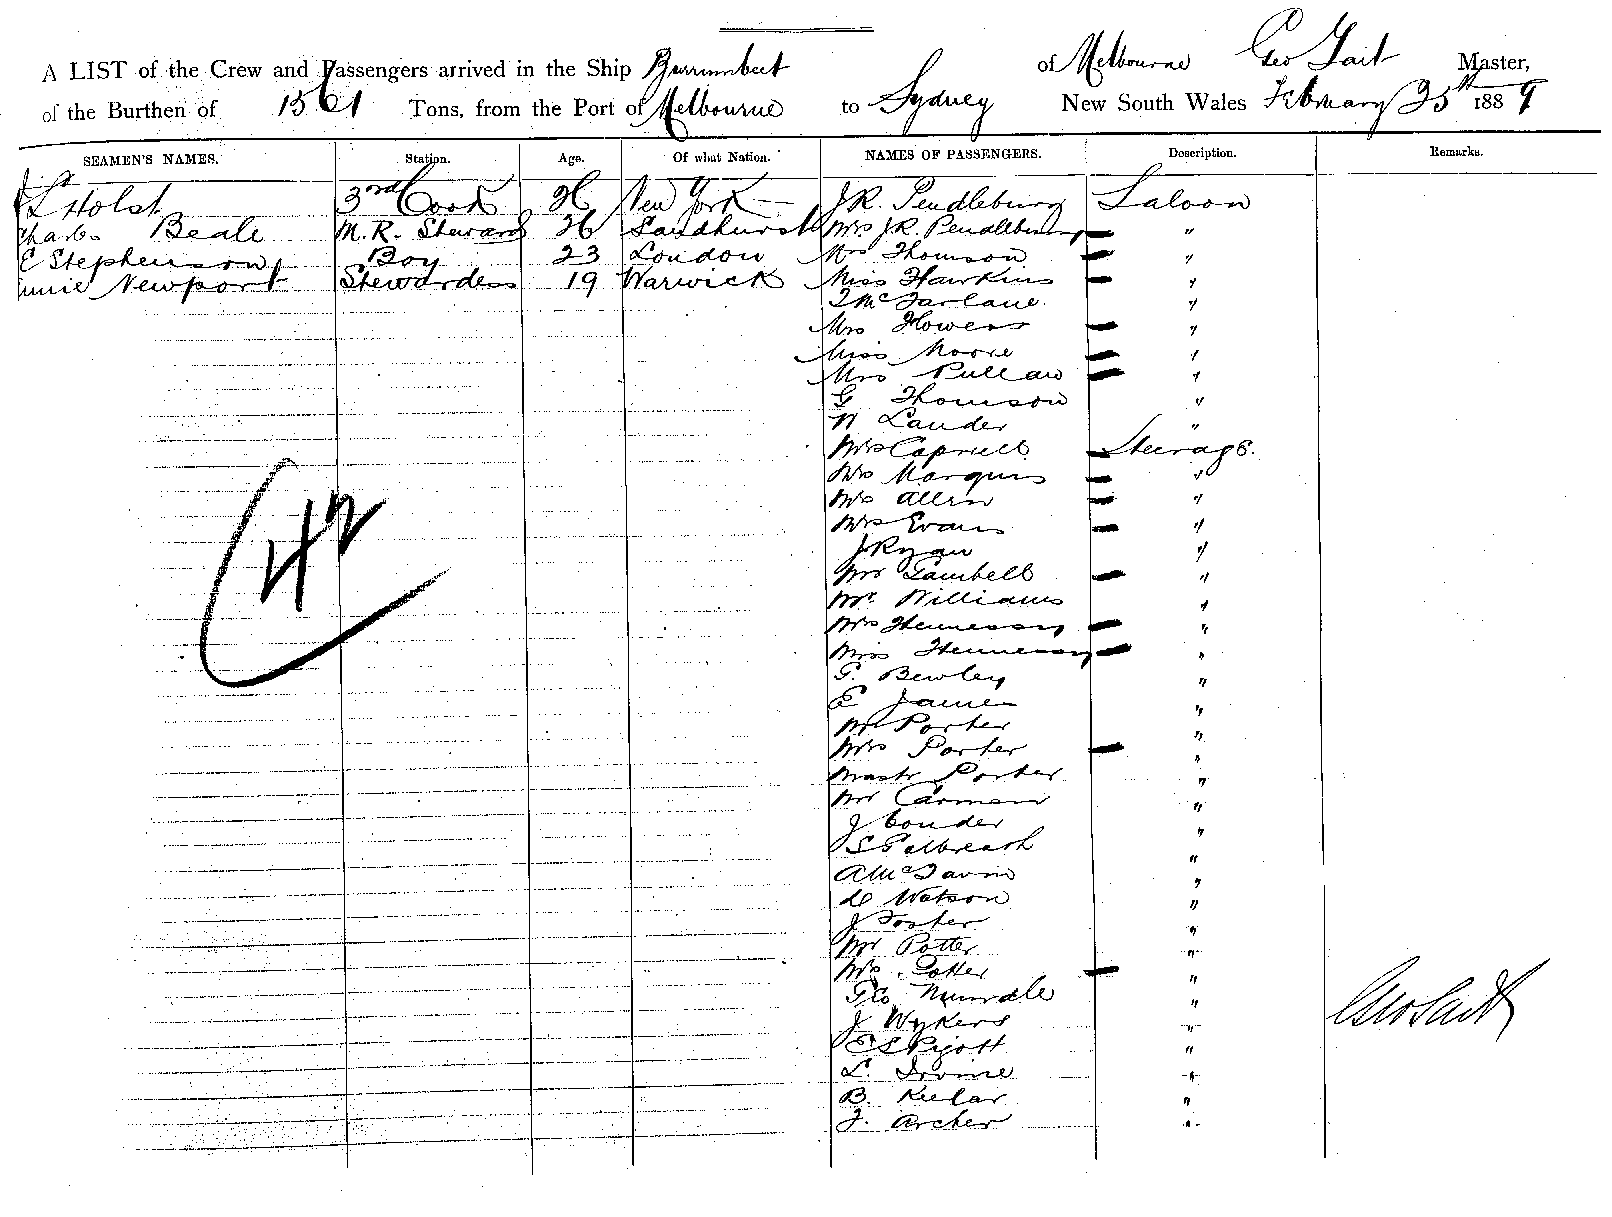 A LIST of the Crew and Passengers arrived in the Ship Burrumbeet of Melbourne Geo Tait Master,
of the Burthen of Tons, from the Port of Melbourne to Sydney New South Wales February 25th 1889
SEAMEN'S NAMES. Station. Age. Of what Nation. NAMES OF PASSENGERS. Description. Remarks.
Holst 3rd Cook 26 New York J.R. Pendlebury Saloon
Charles Beale M.R. Steward 26 Sandhurst Mrs J.R. Pendlebury "
C Stephenson Boy 23 London Mrs Thomson "
Newport Stewardess 19 Warwick Miss Hawkins "
McFarlane "
Mrs Howens "
Miss Moore "
Mrs Pullan "
G Thomson "
Lauder "
Mrs Steerage.
Mrs Marquis "
Mrs Allen "
Mrs Evans "
J Ryan "
Mrs "
Mr Williams "
Mrs Hennessy "
Miss Hennessy "
G. Bewley "
E James "
Mr Porter "
Mrs Porter "
Mastr Porter "
Mr Carmen "
J Couder "
S Galbreath "
A "
Watson "
J Foster "
Mr Potter "
Mrs Potter "
Geo "
J Wykers "
E S Pigott "
L. Irvine "
B. Keelar "
J. Archer "
42
Geo Tait